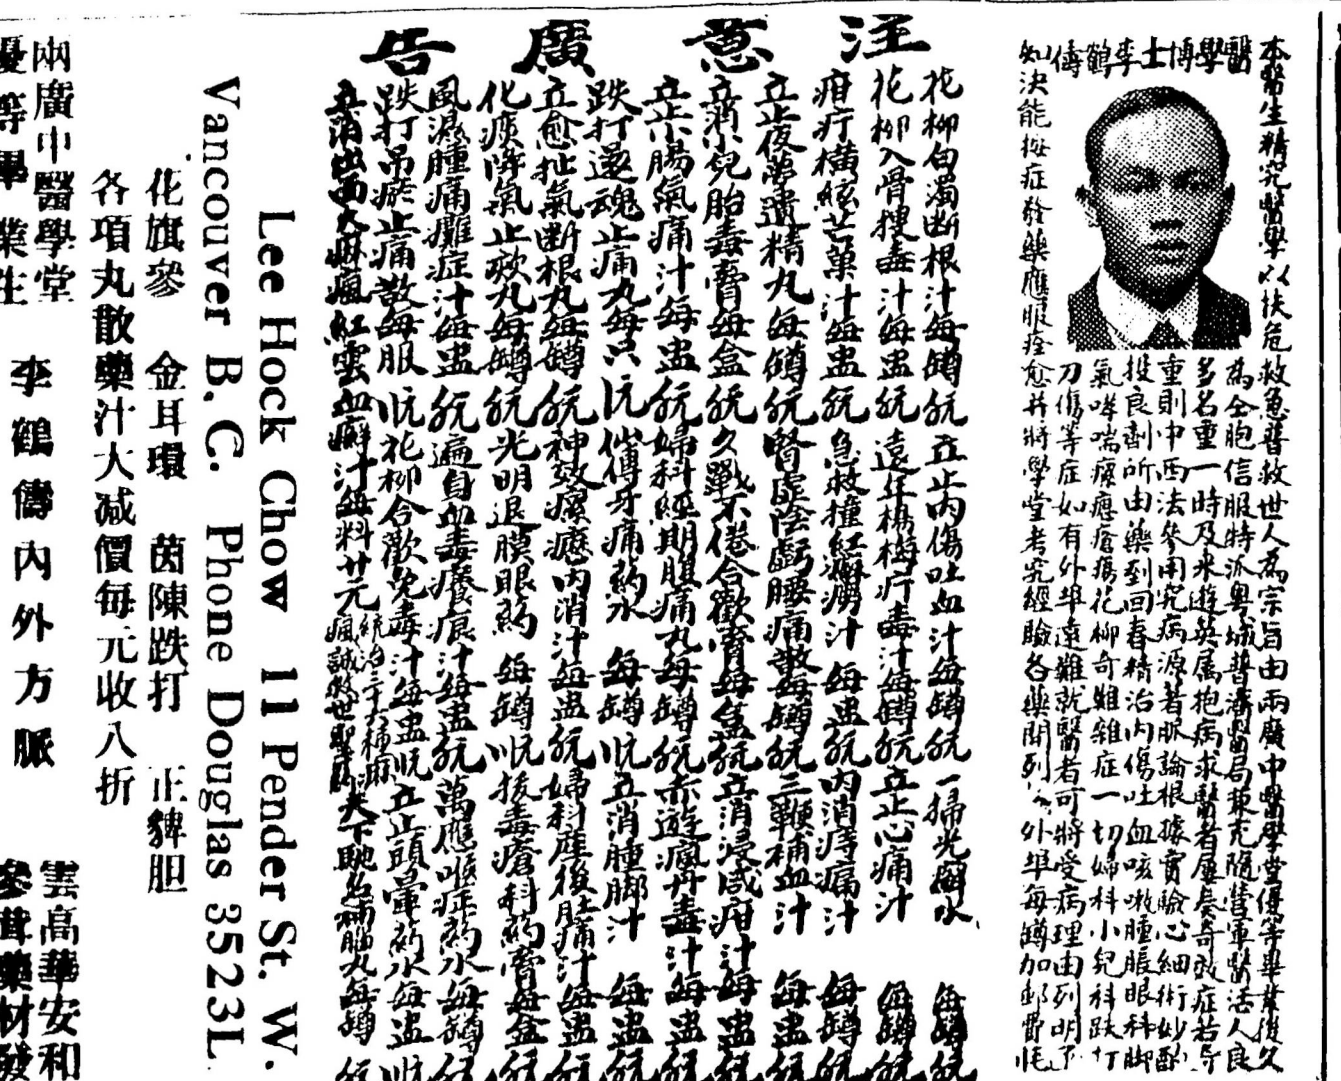 醫學博士李鶴儔
本醫生精究醫學以扶危救急普救世人為宗旨由兩廣中醫學堂優等畢業後久
為仝胞信服特派粵城普濟醫局兼充隨營軍醫活人良
多名重一時及來遊英属抱病求醫者屢奏奇效症若奇
重則中西法參用究病源著脈論根據實驗心細術妙酌
投良劑所由藥到回春精治內傷吐血咳嗽腫脹眼科脚
氣哮喘瘡瘍花柳奇難雜症一切婦科小兒科跌打
刀傷等症如有外埠遠難就醫者可將受病理由列明下
知決能按症發藥應服痊愈并將學堂考究經驗各藥開列 外埠每罇加郵費
注意廣告
花柳白濁断根汁每罇 立止內傷吐血汁每罇 一掃光癬水 每罇
花柳入骨搜毒汁每盅 遠年楊梅疔毒汁每罇 立止心痛汁 每罇
疳疔橫痃芒菓汁每盅 急救撞紅癆汁 每盅 內消痔痛汁 每罇
立止夜夢遺精丸每罇 腎虛陰虧腰痛散每罇 三鞭補血汁 每盅
立消小兒胎毒膏每盒 久戰不倦合歡膏每盒 立消浸咸疳汁每盅
立止小腸氣痛汁每盅 婦科經期腹痛丸每罇 赤遊瘋丹毒汁每盅
跌打還魂止痛丸每只 傷牙痛葯水 每罇 立消腫脚汁 每盅
立愈扯氣断根丸每罇 神效瘰癧內消汁每盅 婦科產後肚痛汁每盅
化痰降氣止咳丸每罇 光明退膜眼葯 每罇 拔毒瘡科葯膏每盒
風濕腫痛癱症汁每盅 遍身血毒癢痕汁每盅 萬應喉症葯水每罇
跌打吊瘀止痛散每服 花柳合歡免毒汁每盅 立止頭暈葯水每盅
立消出面大麻瘋紅雲血癬汁每料廿元 統治三十六種麻瘋誠救世聖藥 天下馳名補腦丸每罇
Lee Hock Chow 11 Pender St. W.
Vancouver B.C. Phone Douglas 3523L
花旗參 金耳環 茵陳跌打 正貔胆
各項丸散藥汁大減價每元收八折
兩廣中醫學堂
優等畢業生
李鶴儔內外方脈
雲高華安和
參茸藥材發